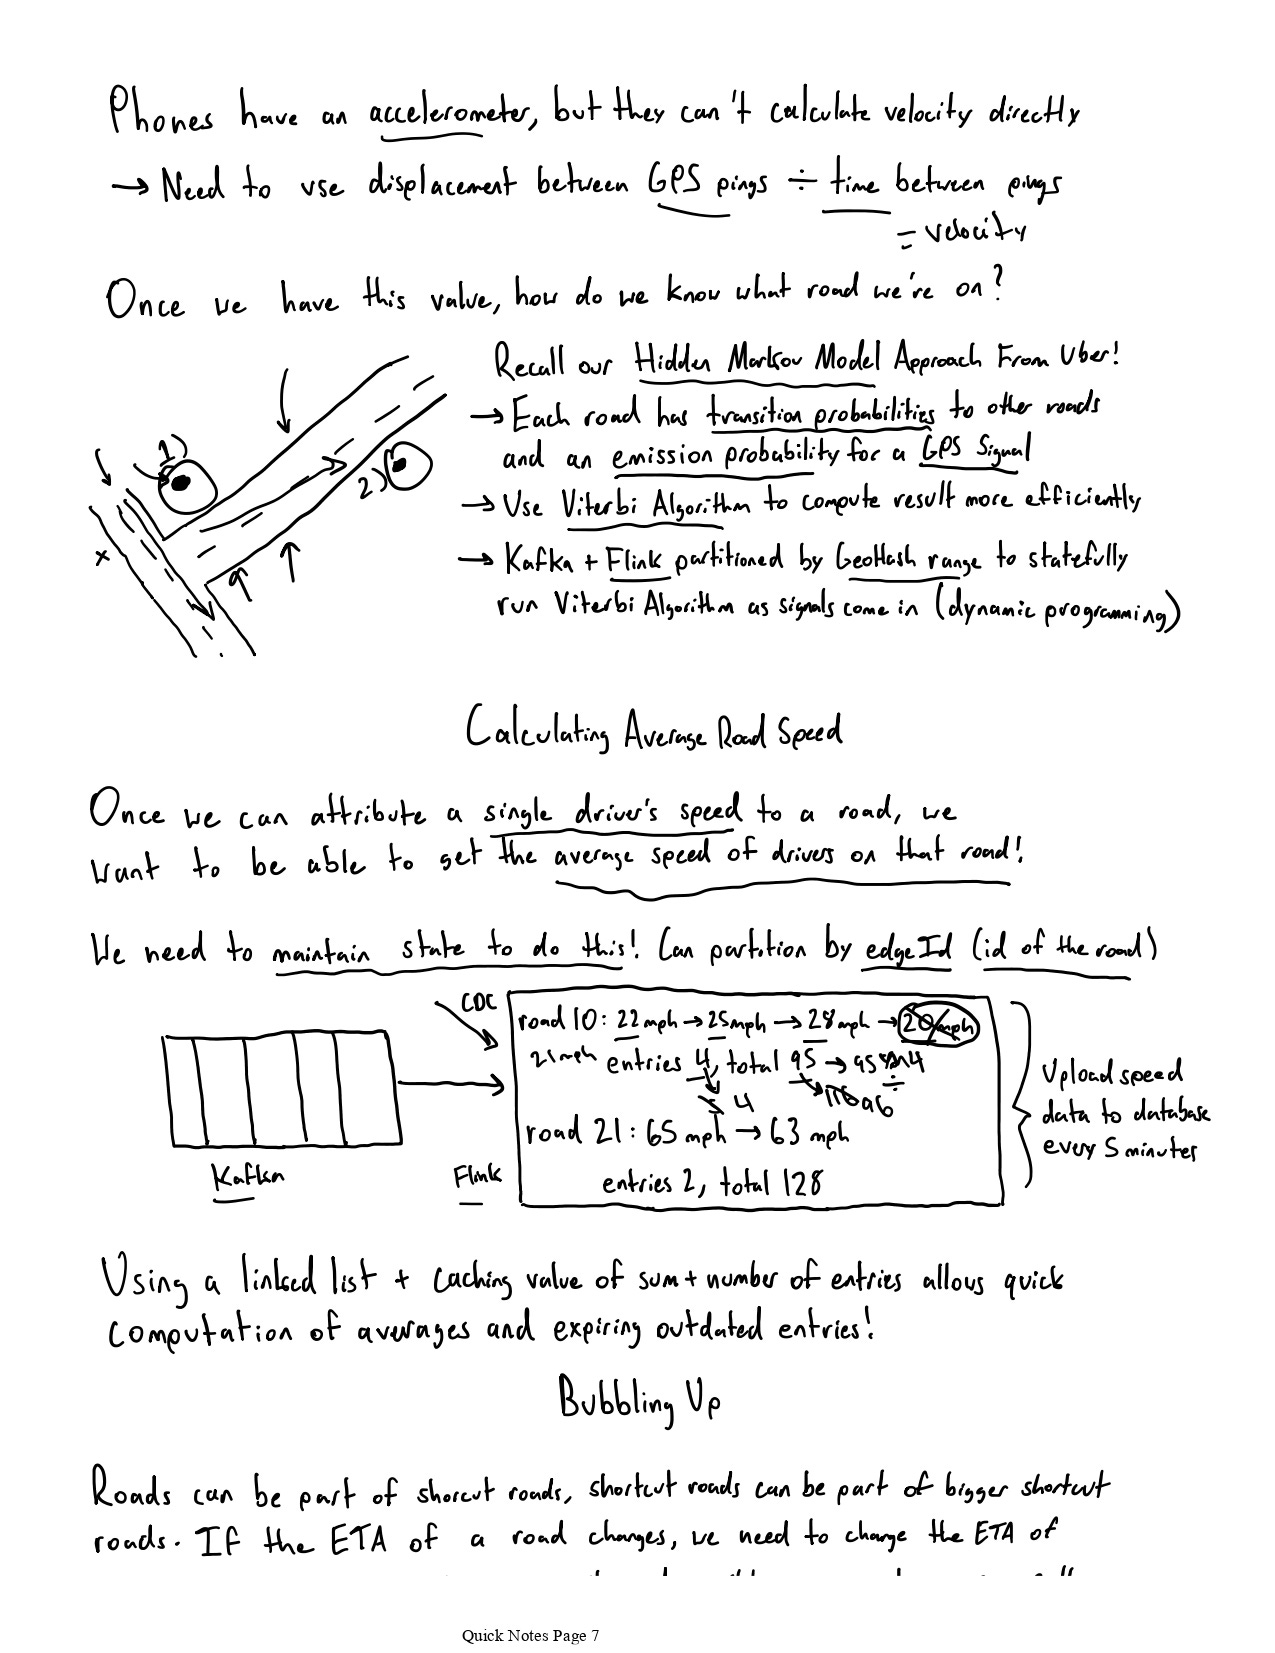 Phones have an accelerometer, but they can't calculate velocity directly
→ Need to use displacement between GPS pings ÷ time between pings
= velocity
Once we have this value, how do we know what road we're on?
Recall our Hidden Markov Model Approach From Uber!
→ Each road has transition probabilities to other roads
and an emission probability for a GPS Signal
→ Use Viterbi Algorithm to compute result more efficiently
→ Kafka + Flink partitioned by GeoHash range to statefully
run Viterbi Algorithm as signals come in (dynamic programming)
1)
2)
x
Calculating Average Road Speed
Once we can attribute a single driver's speed to a road, we
want to be able to get the average speed of drivers on that road!
We need to maintain state to do this! Can partition by edgeId (id of the road)
CDC
road 10: 22mph → 25mph → 28mph → 20mph
21mph entries 4, total 95 → 95 4
÷
4 116 96
road 21: 65 mph → 63 mph
entries 2, total 128
Kafka
Flink
Upload speed
data to database
every 5 minutes
Using a linked list + caching value of sum + number of entries allows quick
computation of averages and expiring outdated entries!
Bubbling Up
Roads can be part of shorcut roads, shortcut roads can be part of bigger shortcut
roads. If the ETA of a road changes, we need to change the ETA of
Quick Notes Page 7